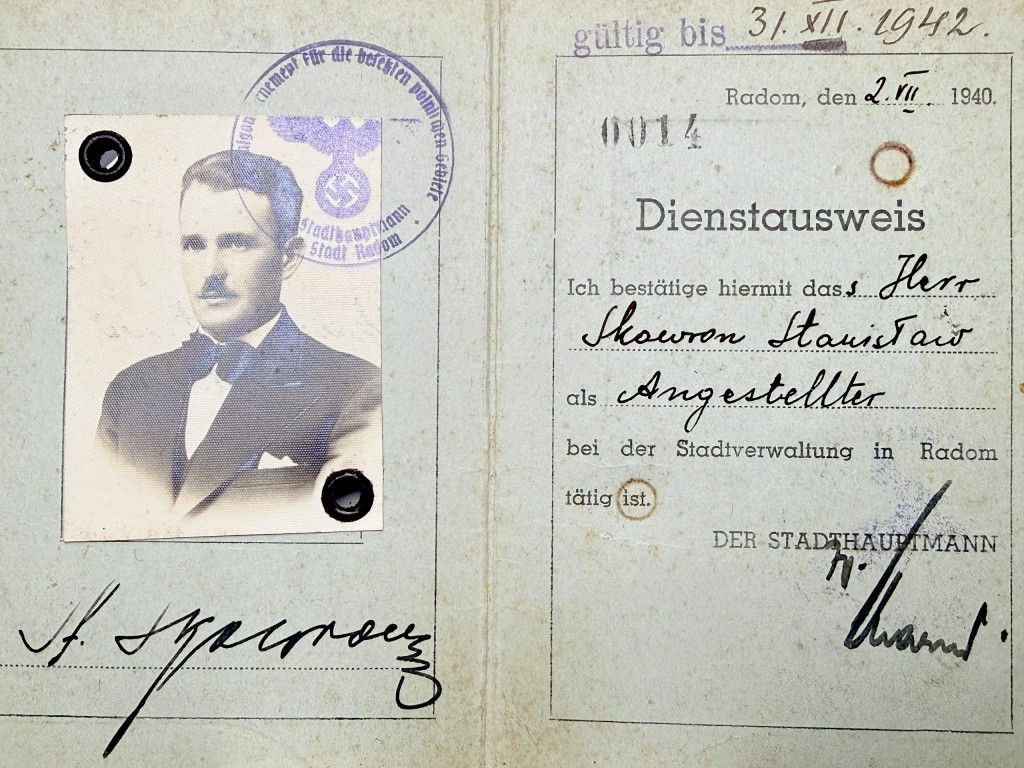 für die besetzten polnischen Gebiete
Stadthauptmann
Stadt Radom
St. Skowron
gültig bis 31. XII. 1942.
Radom, den 2. VII. 1940.
0014
Dienstausweis
Ich bestätige hiermit dass Herr
Skowron Stanisław
als Angestellter
bei der Stadtverwaltung in Radom
tätig ist.
DER STADTHAUPTMANN